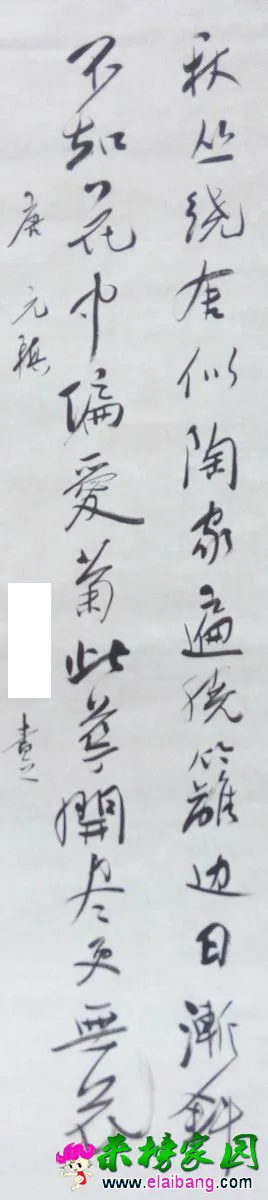 秋丛绕舍似陶家遍绕籬边日漸斜
不知花中偏愛菊此花開尽更無花
唐 元稹
書
来榜家园
www.elaibang.com